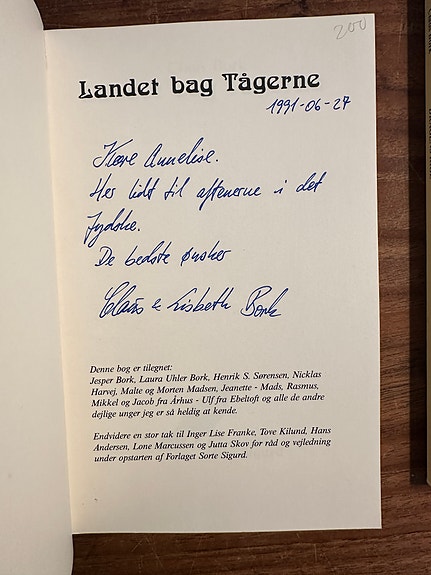 200
Landet bag Tågerne
1991-06-27
Kære Annelise.
Her lidt til aftenerne i det
jydske.
De bedste ønsker
Claus & Lisbeth Bork
Denne bog er tilegnet:
Jesper Bork, Laura Uhler Bork, Henrik S. Sørensen, Nicklas
Harvej, Malte og Morten Madsen, Jeanette - Mads, Rasmus,
Mikkel og Jacob fra Århus - Ulf fra Ebeltoft og alle de andre
dejlige unger jeg er så heldig at kende.
Endvidere en stor tak til Inger Lise Franke, Tove Kilund, Hans
Andersen, Lone Marcussen og Jutta Skov for råd og vejledning
under opstarten af Forlaget Sorte Sigurd.